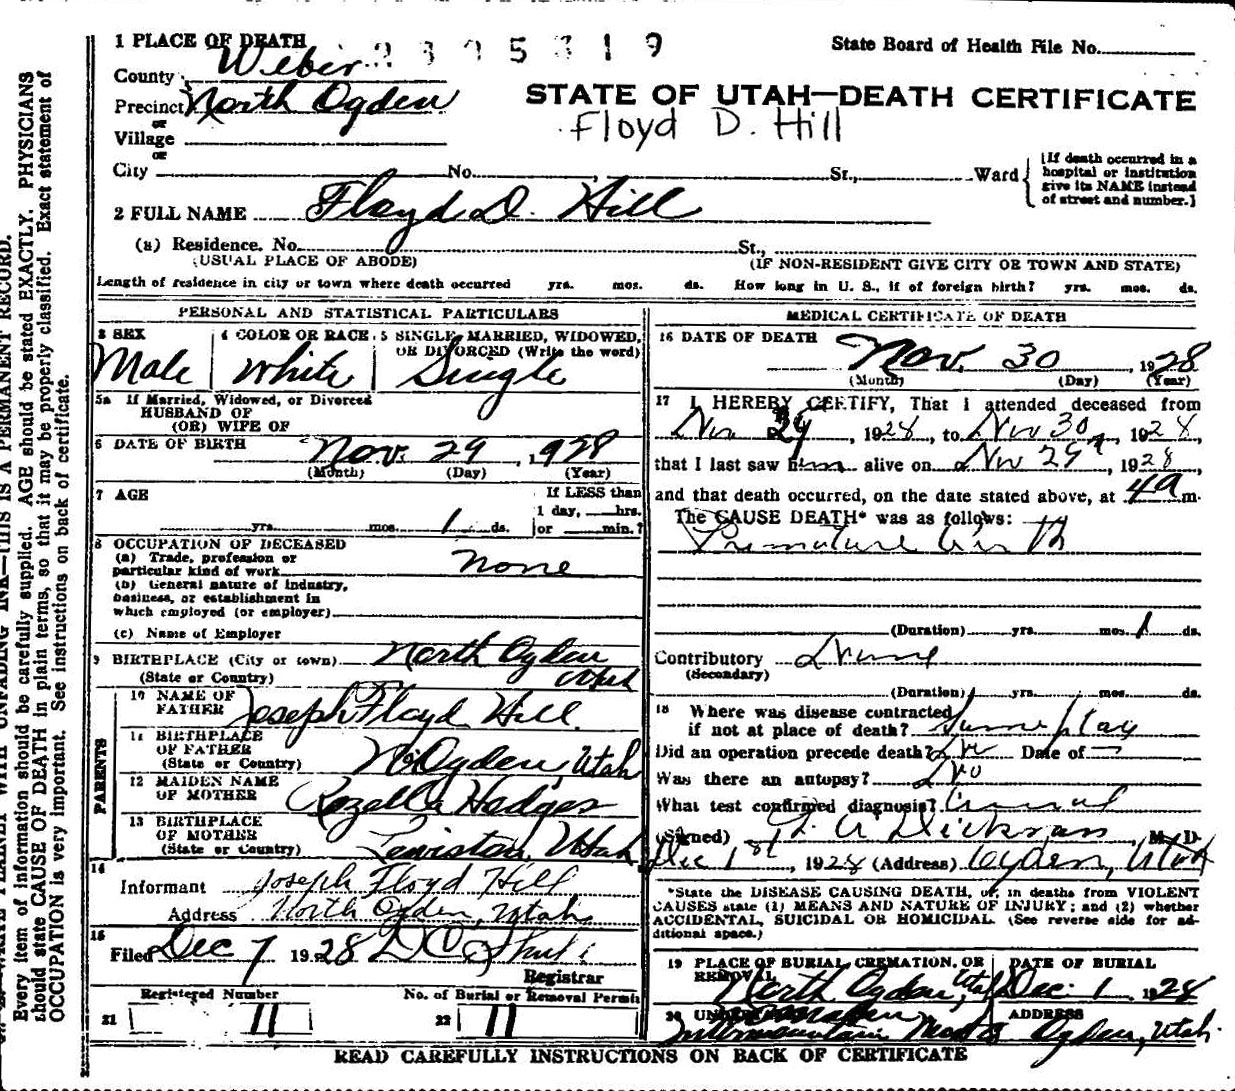 1 PLACE OF DEATH
2395319
State Board of Health File No.
County Weber
Precinct North Ogden
STATE OF UTAH—DEATH CERTIFICATE
or
Village
Floyd D. Hill
or
City No. St., Ward
[If death occurred in a hospital or institution give its NAME instead of street and number.]
2 FULL NAME Floyd D. Hill
(a) Residence. No. St.,
(USUAL PLACE OF ABODE) (IF NON-RESIDENT GIVE CITY OR TOWN AND STATE)
Length of residence in city or town where death occurred yrs. mos. ds. How long in U. S., if of foreign birth? yrs. mos. ds.
PERSONAL AND STATISTICAL PARTICULARS
3 SEX 4 COLOR OR RACE 5 SINGLE, MARRIED, WIDOWED,
OR DIVORCED (Write the word)
Male White Single
5a If Married, Widowed, or Divorced
HUSBAND OF
(OR) WIFE OF
6 DATE OF BIRTH Nov. 29, 1928
(Month) (Day) (Year)
7 AGE If LESS than
1 day, hrs.
yrs. mos. 1 ds. or min.?
8 OCCUPATION OF DECEASED
(a) Trade, profession or
particular kind of work None
(b) General nature of industry,
business, or establishment in
which employed (or employer)
(c) Name of Employer
9 BIRTHPLACE (City or town) North Ogden
(State or Country) Utah
PARENTS
10 NAME OF
FATHER Joseph Floyd Hill
11 BIRTHPLACE
OF FATHER
(State or Country) No. Ogden, Utah
12 MAIDEN NAME
OF MOTHER Rozella Hodges
13 BIRTHPLACE
OF MOTHER
(State or Country) Lewiston, Utah
14
Informant Joseph Floyd Hill
Address North Ogden, Utah
15
Filed Dec 7 1928
Registrar
Registered Number No. of Burial or Removal Permit
21 11 22 11
MEDICAL CERTIFICATE OF DEATH
16 DATE OF DEATH
Nov. 30, 1928
(Month) (Day) (Year)
17 I HEREBY CERTIFY, That I attended deceased from
Nov 29, 1928, to Nov 30, 1928,
that I last saw him alive on Nov 29, 1928,
and that death occurred, on the date stated above, at 4 a m.
The CAUSE DEATH* was as follows:
Premature birth
(Duration) yrs. mos. 1 ds.
Contributory None
(Secondary)
(Duration) yrs. mos. ds.
18 Where was disease contracted
if not at place of death? Same place
Did an operation precede death? No Date of
Was there an autopsy? No
What test confirmed diagnosis?
(Signed) Dickson M. D.
Dec 1st, 1928 (Address) Ogden, Utah
*State the DISEASE CAUSING DEATH, or, in deaths from VIOLENT
CAUSES state (1) MEANS AND NATURE OF INJURY; and (2) whether
ACCIDENTAL, SUICIDAL OR HOMICIDAL. (See reverse side for ad-
ditional space.)
19 PLACE OF BURIAL, CREMATION, OR DATE OF BURIAL
REMOVAL
North Ogden, Utah Dec. 1 1928
20 ADDRESS
Intermountain Ogden, Utah.
READ CAREFULLY INSTRUCTIONS ON BACK OF CERTIFICATE
THIS IS A PERMANENT RECORD.
Every item of information should be carefully supplied. AGE should be stated EXACTLY. PHYSICIANS
should state CAUSE OF DEATH in plain terms, so that it may be properly classified. Exact statement of
OCCUPATION is very important. See instructions on back of certificate.